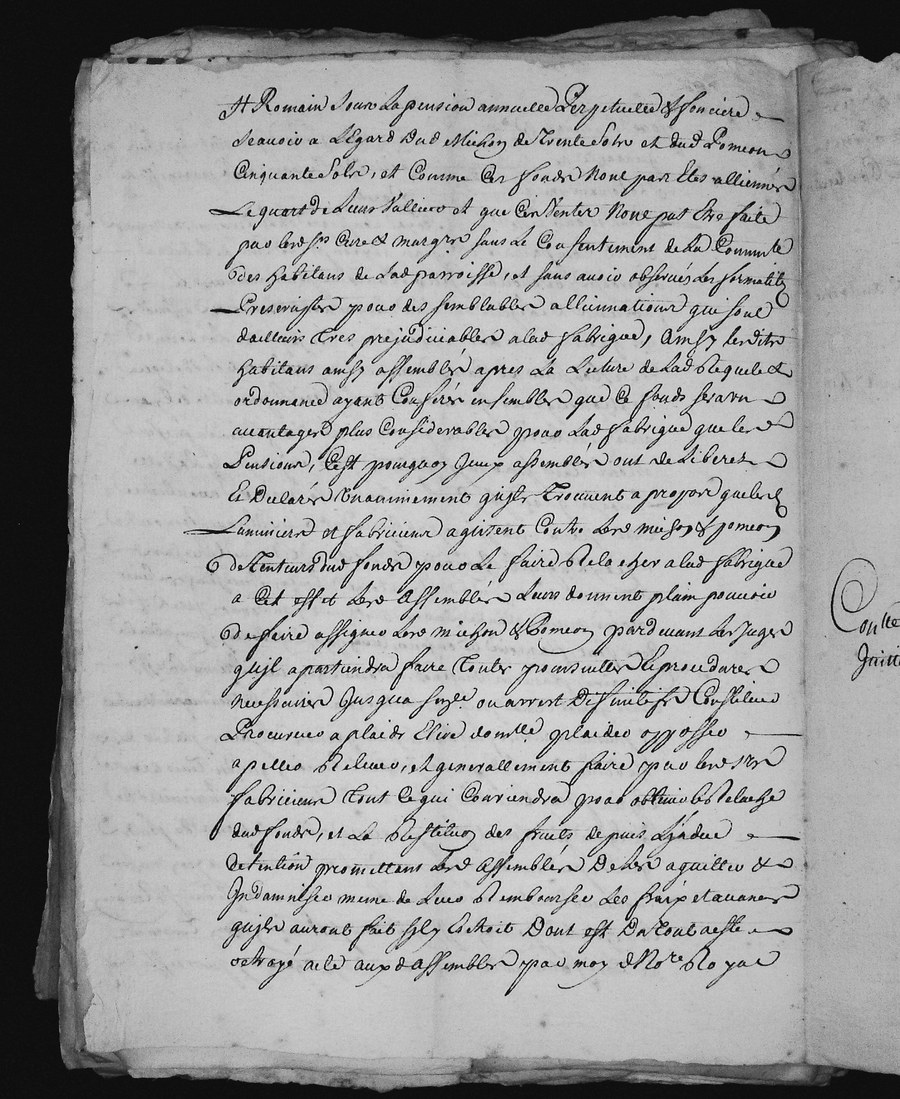 St Romain Sous La pension annuelle Perpetuelle & fonciere
Scauoir a L'Egard Dud Michon de Trente Sols et dud Pomeon
Cinquante Sols, et Comme Ces fonds Nont pas Etes alliennés
Le quart de Leurs Valleur et que Ces Ventes Nont pat Etre faite
par lesd srs Cure & margrs sans Le Consentement de La Commte
des habitans de Lad parroisse, et sans auoir obserués Les formalités
Preservistes pour des semblables alliennations qui sont
dailleurs tres prejudiciables alad fabrique, Ainsy lesdits
habitans ainsy assemblés apres La Lecture de Lad Requete &
ordonnance ayants Conferés ensembles que Ce fonds sera un
auantages plus Considerables pour Lad fabrique que lesd
Pensions, Cest pourquoy Iceux assemblés ont deLiberez
Et Declarés Unanimement quils trouuent a propos que lesd
Luminiers et fabriciens agissent Contre Lesd michon & pomeon
deTenteurs dud fonds pour Le faire Relacher alad fabrique
a Cet effet Lesd Assemblés Leurs donnent plain pouuoir
de faire assigner Lesd michon & Pomeon pardeuant Les Juges
quil apartiendra faire toutes poursuittes & procedures
necessaires Jusqua sentce ou arrest Definitifs Constituer
Procureur a plaids Elire domlle plaider opposser
apeller Releuer, et generallement faire par lesd srs
fabriciens tout Ce qui Conviendra pour obtenir le Relache
dud fonds, et La Restituon des fruits depuis L'Jndue
detention promettant Lesd Assemblés De Les aquitter &
Indamniser meme de Leur Rembourser Les fraix et auances
quils auront fait sil y Eschoit Dont est Du tout acte
octroyé acte aux d assemblés par moy d Nore Royal
Conlle
Juill